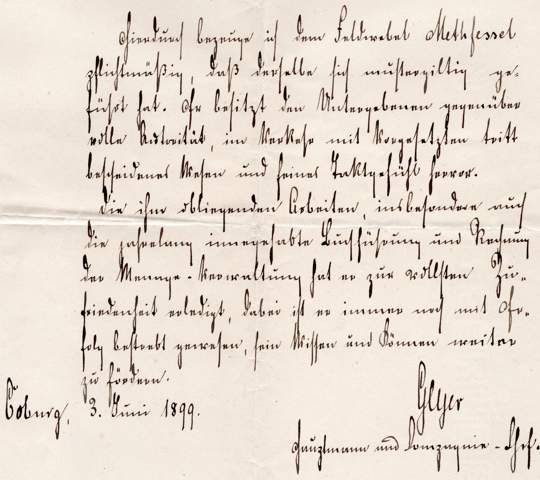 Hierdurch bezeuge ich dem Feldwebel Methfessel
pflichtmäßig, daß derselbe sich mustergiltig ge-
führt hat. Er besitzt den Untergebenen gegenüber
volle Autorität, im Verkehr mit Vorgesetzten tritt
bescheidenes Wesen und feines Taktgefühl hervor.
Die ihm obliegenden Arbeiten, insbesondere auch
die jahrelang innegehabte Buchführung und Rechnung
der Menage-Verwaltung hat er zur vollsten Zu-
friedenheit erledigt, dabei ist er immer noch mit Er-
folg bestrebt gewesen, sein Wissen und Können weiter
zu fördern.
Coburg, 3. Juni 1899.
Geyer
Hauptmann und Compagnie-Chef.